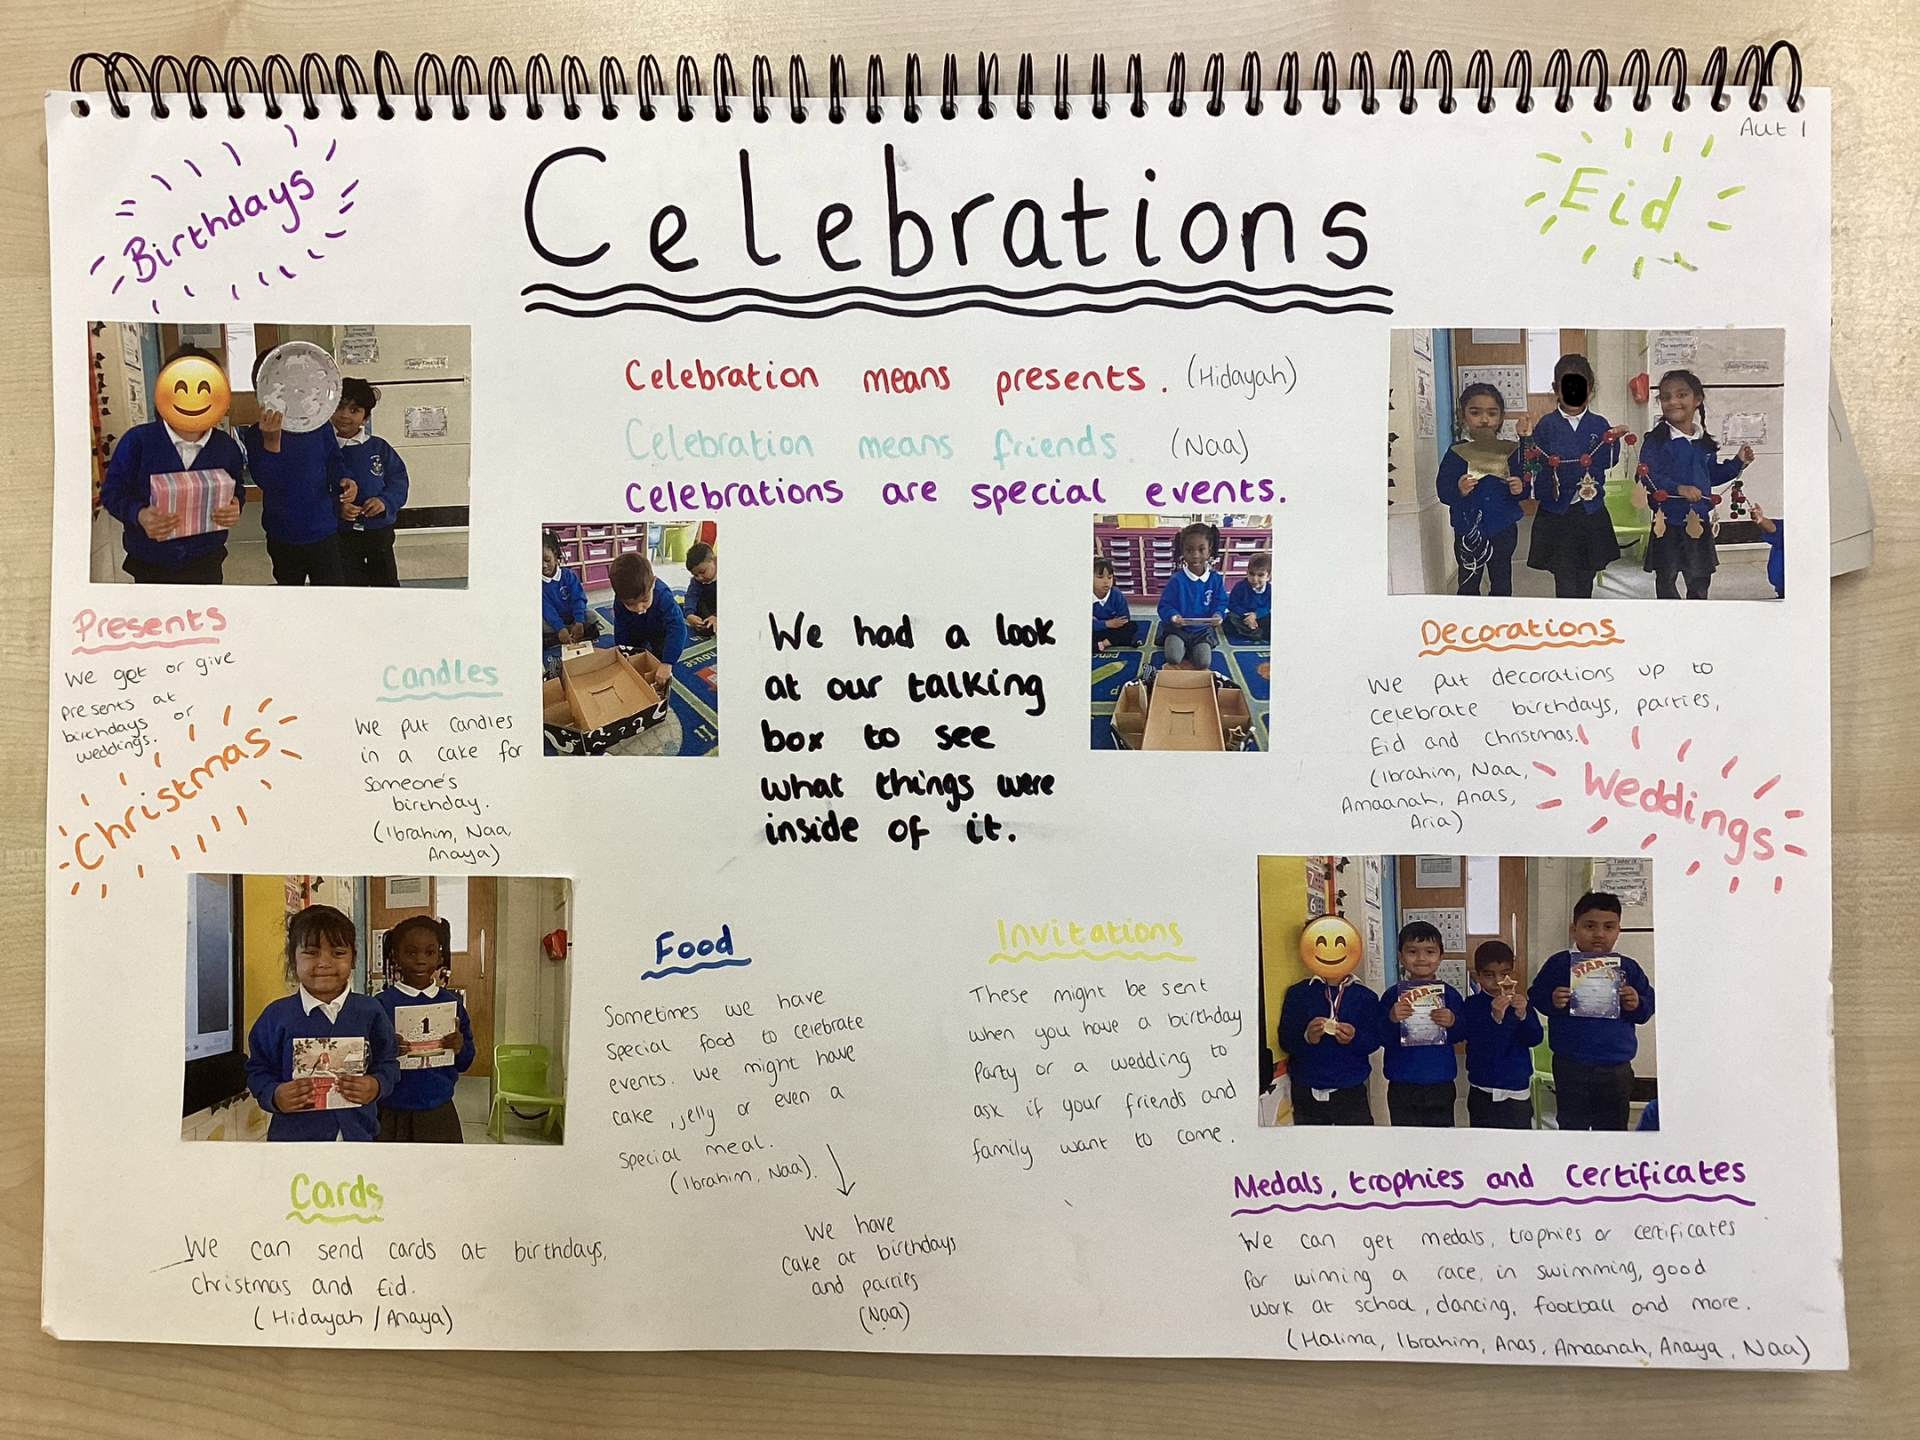 Aut 1
Birthdays
Celebrations
Eid
Celebration means presents. (Hidayah)
Celebration means friends. (Naa)
Celebrations are special events.
We had a look
at our talking
box to see
what things were
inside of it.
Presents
We get or give
presents at
birthdays or
weddings.
Christmas
Candles
We put candles
in a cake for
Someone's
birthday.
(Ibrahim, Naa,
Anaya)
Decorations
We put decorations up to
celebrate birthdays, parties,
Eid and Christmas.
(Ibrahim, Naa,
Amaanah, Anas,
Aria)
Weddings
Cards
We can send cards at birthdays,
Christmas and Eid.
(Hidayah / Anaya)
Food
Sometimes we have
special food to celebrate
events. We might have
cake, jelly or even a
special meal.
(Ibrahim, Naa).
We have
cake at birthdays
and parties
(Naa)
Invitations
These might be sent
when you have a birthday
Party or a wedding to
ask if your friends and
family want to come.
STAR
STAR
1
Medals, trophies and certificates
We can get medals, trophies or certificates
for winning a race, in swimming, good
work at school, dancing, football and more.
(Halima, Ibrahim, Anas, Amaanah, Anaya, Naa)